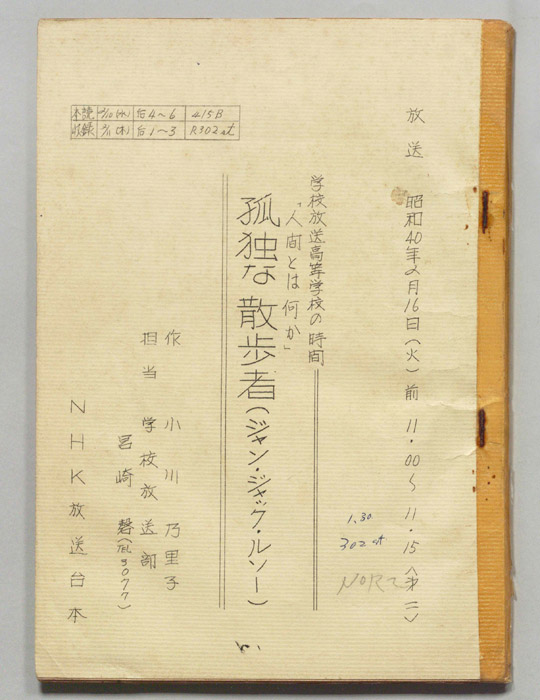 放送 昭和40年2月16日(火) 前 11.00〜11.15 (第二)
学校放送高等学校の時間
「人間とは何か」
孤独な散歩者(ジャン・ジャック・ルソー)
作 小川乃里子
担当 学校放送部
宮崎 (3077)
NHK放送台本
本読 2/10(水) 后4〜6 415B
収録 2/11(木) 后1〜3 R302st
1.30
302st